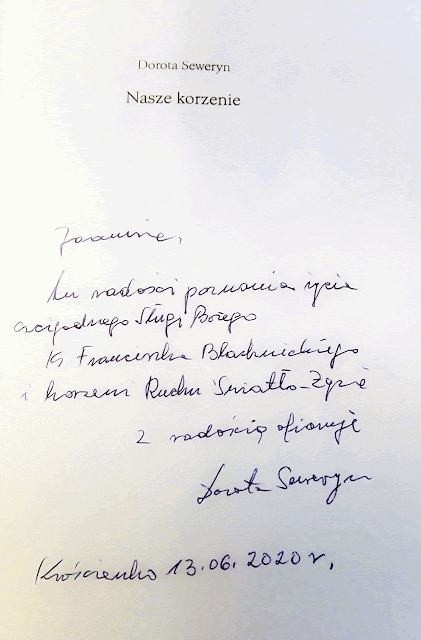 Dorota Seweryn
Nasze korzenie
Joannie,
ku radości poznania życia
czcigodnego Sługi Bożego
Ks Franciszka Blachnickiego
i korzeni Ruchu Światło-Życie
z radością ofiaruję
Dorota Seweryn
Krościenko 13.06.2020 r.